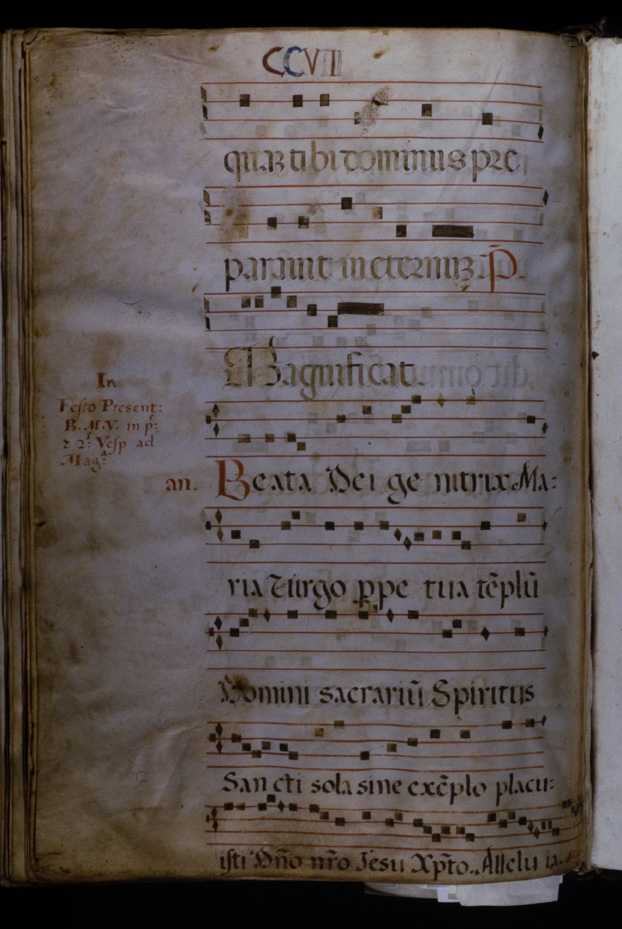 CCVII
quaʒ tibi dominus pre
parauit in eternuʒ. P.
Magnificat.
In
Festo Present:
B. M. V. in pͤ:
⁊ 2ͤ: Vesp ad
Magͣ:
an. Beata Dei genitrix Ma:
ria Uirgo ꝑpe tua tēplū
Domini sacrariū Spiritus
Sancti sola sine exēplo placu:
isti Dño nr̃o Jesu Xp̃to. Allelu ia.